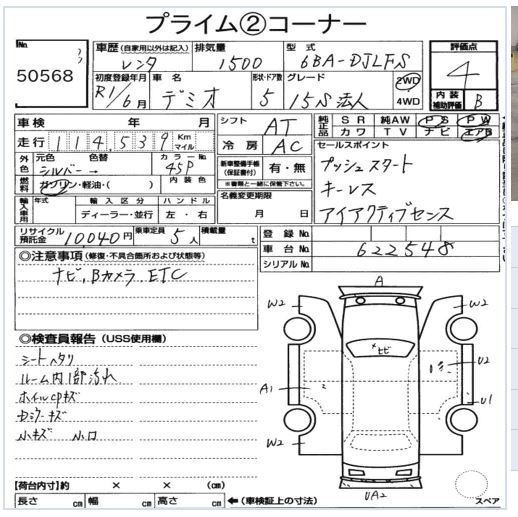 プライム②コーナー
No. 50568
車歴 (自家用以外は記入) レンタ
排気量 1500
型式 6BA-DJLFS
評価点 4
内装補助評価 B
初度登録年月 R1/6月
車名 デミオ
形状・ドア数 5
グレード 15S法人
2WD
4WD
車検 年 月
走行 114,539 Km マイル
シフト AT
冷房 AC
純正品 SR 純AW PS PW
カワ TV ナビ エアB
外色 元色 色替 シルバー→
カラーNo. 45P
燃料 ガソリン・軽油・( )
内装色
新車整備手帳(保証書付) 有・無
※書類と一緒に保管下さい。
セールスポイント
プッシュスタート
キーレス
アイアクティブセンス
輸入車用 年式 輸入区分 ハンドル
ディーラー・並行 左・右
名義変更期限 月 日
リサイクル預託金 10040円
乗車定員 5人
積載量 t
登録No.
車台No. 622548
シリアルNo.
◎注意事項 (修復・不具合箇所および状態等)
ナビ、Bカメラ、ETC
◎検査員報告 (USS使用欄)
シートヘタリ
ルーム内1部汚れ
ホイルcpキズ
小キズ 小凹
A
W2 W2
メヒビ
U2
A1
U1
W2
UA2
スペア
【荷台内寸】約 × × (cm)
長さ cm 幅 cm 高さ cm ←(車検証上の寸法)